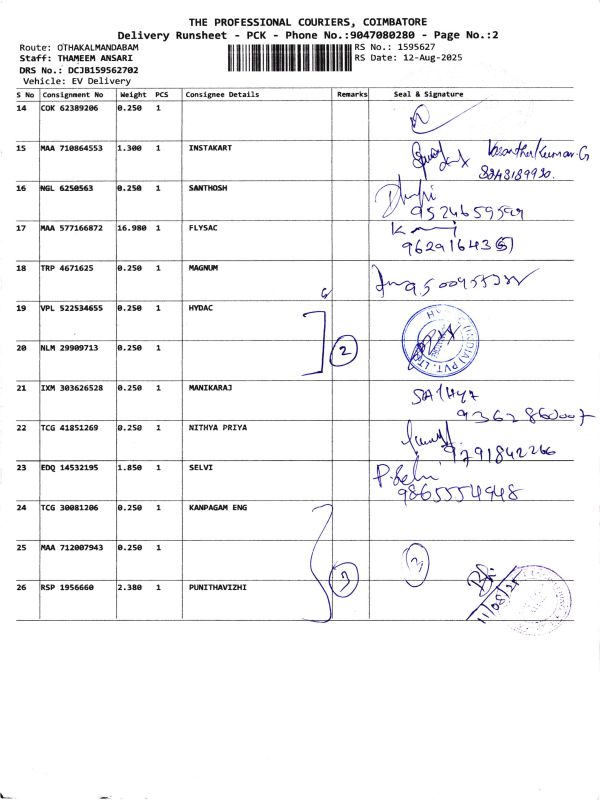 THE PROFESSIONAL COURIERS, COIMBATORE
Delivery Runsheet - PCK - Phone No.:9047080280 - Page No.:2
Route: OTHAKALMANDABAM RS No.: 1595627
Staff: THAMEEM ANSARI RS Date: 12-Aug-2025
DRS No.: DCJB159562702
Vehicle: EV Delivery
S No Consignment No Weight PCS Consignee Details Remarks Seal & Signature
14 COK 62389206 0.250 1
15 MAA 710864553 1.300 1 INSTAKART
16 NGL 6250563 0.250 1 SANTHOSH
17 MAA 577166872 16.980 1 FLYSAC
9629164365
18 TRP 4671625 0.250 1 MAGNUM
19 VPL 522534655 0.250 1 HYDAC
20 NLM 29909713 0.250 1 2
21 IXM 303626528 0.250 1 MANIKARAJ
SATHYA
9362860007
22 TCG 41851269 0.250 1 NITHYA PRIYA
9791842266
23 EDQ 14532195 1.850 1 SELVI
P. Selvi
9865554948
24 TCG 30081206 0.250 1 KANPAGAM ENG
25 MAA 712007943 0.250 1 3
26 RSP 1956660 2.380 1 PUNITHAVIZHI 3